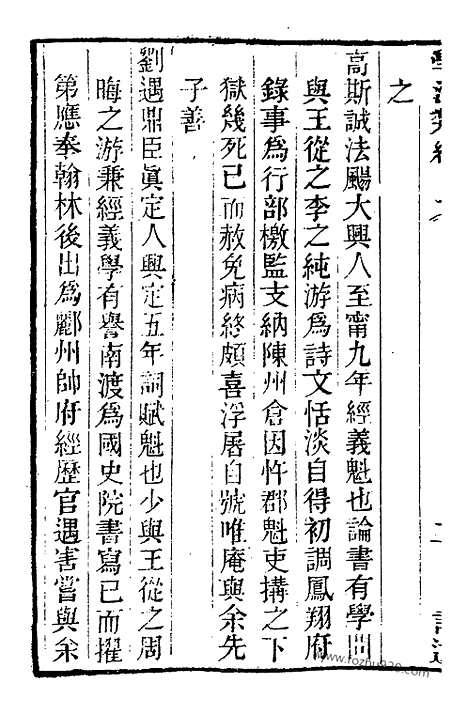 之
高斯誠法颺大興人至甯九年經義魁也論書有學問
與王從之李之純游為詩文恬淡自得初調鳳翔府
錄事為行部檄監支納陳州倉因忤郡魁吏搆之下
獄幾死已而赦免病終頗喜浮屠自號唯庵與余先
子善
劉遇鼎臣眞定人興定五年詞賦魁也少與王從之周
晦之游兼經義學有譽南渡為國史院書寫已而擢
第應奉翰林後出為鄜州帥府經歷官遇害嘗與余
www.fozhu920.com